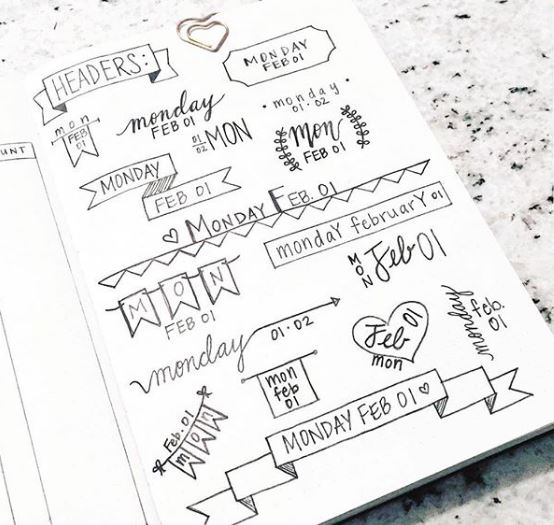 HEADERS:
MONDAY
FEB 01
mon
FEB
01
monday
FEB 01
monday
01·02
01
02
MON
mon
FEB 01
UNT
MONDAY
FEB 01
MONDAY FEB. 01
mondaY februarY 01
MON
FEB 01
MON
Feb 01
monday
01·02
Feb 01
mon
monday
feb.
01
mon
feb
01
Feb. 01
mon
MONDAY FEB 01